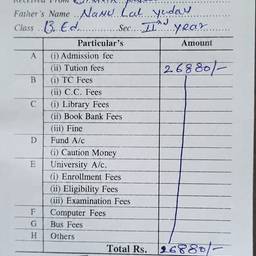 Received From
Father's Name Nanu Lal yadav
Class B.Ed Sec. IInd year
Particular's Amount
A (i) Admission fee
(ii) Tution fees 26880/-
B (i) TC Fees
(ii) C.C. Fees
C (i) Library Fees
(ii) Book Bank Fees
(iii) Fine
D Fund A/c
(i) Caution Money
E University A/c.
(i) Enrollment Fees
(ii) Eligibility Fees
(iii) Examination Fees
F Computer Fees
G Bus Fees
H Others
Total Rs. 26880/-